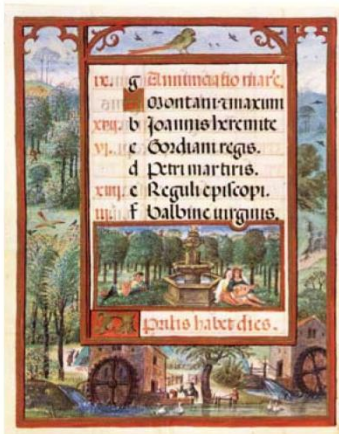 g Annunciatio marie.
A Montani ⁊ maximi
b Joannis heremite
c Gordiani regis.
d Petri martiris.
e Reguli episcopi.
f balbine uirginis.
Aprilis habet dies.